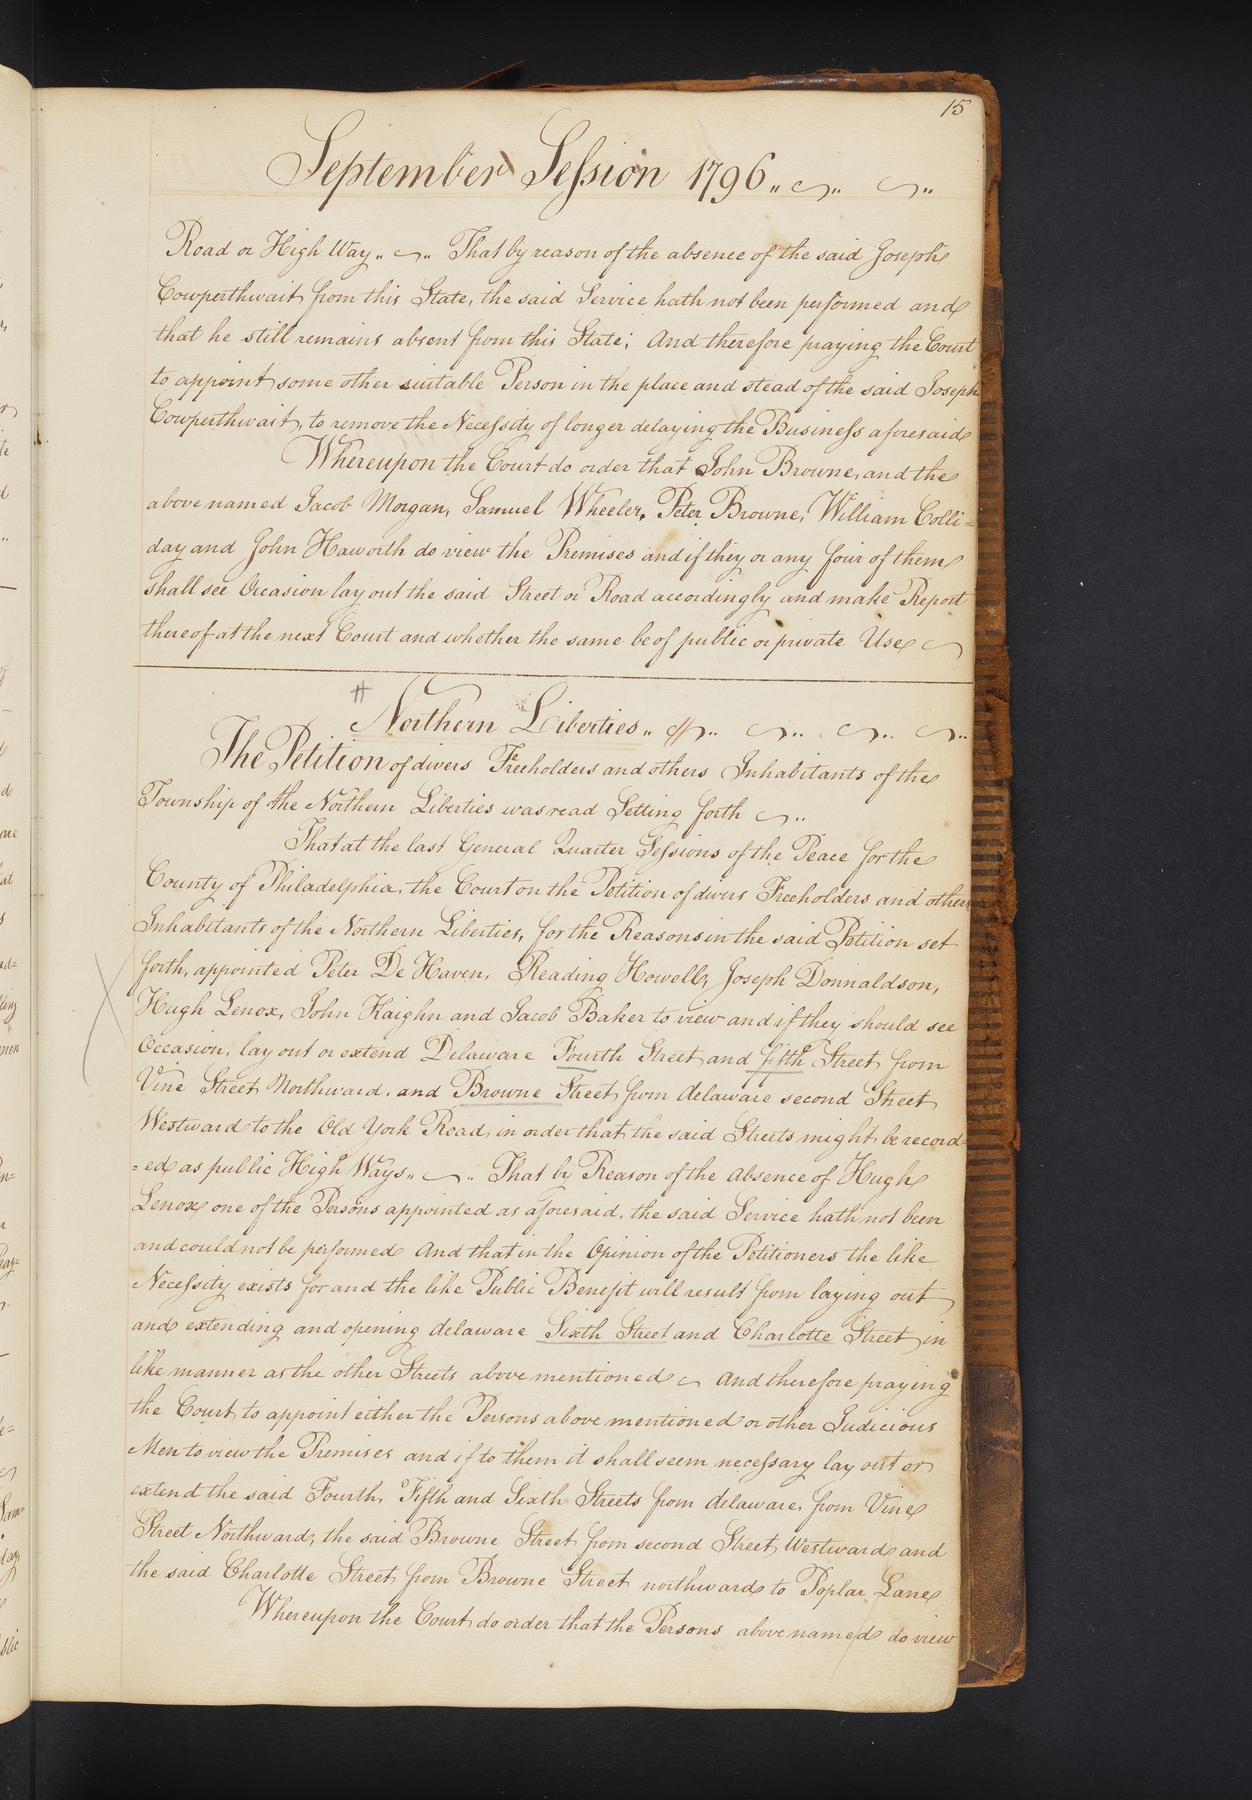 15
September Session 1796
Road or High Way. That by reason of the absence of the said Joseph
Cowperthwait from this State, the said Service hath not been performed and
that he still remains absent from this State; And therefore praying the Court
to appoint some other suitable Person in the place and stead of the said Joseph
Cowperthwait, to remove the Necessity of longer delaying the Business aforesaid
Whereupon the Court do order that John Browne, and the
above named Jacob Morgan, Samuel Wheeler, Peter Browne, William Colli=
day and John Haworth do view the Premises and if they or any four of them
shall see Occasion lay out the said Street or Road accordingly and make Report
thereof at the next Court and whether the same be of public or private Use
Northern Liberties
The Petition of divers Freeholders and others Inhabitants of the
Township of the Northern Liberties was read Setting forth
That at the last General Quarter Sessions of the Peace for the
County of Philadelphia, the Court on the Petition of divers Freeholders and others
Inhabitants of the Northern Liberties, for the Reasons in the said Petition set
forth, appointed Peter De Haven, Reading Howell, Joseph Donnaldson,
Hugh Lenox, John Kaighn and Jacob Baker to view and if they should see
Occasion, lay out or extend Delaware Fourth Street and fifth Street from
Vine Street Northward, and Browne Street from delaware second Street
Westward to the Old York Road, in order that the said Streets might be record=
=ed as public High Ways. That by Reason of the Absence of Hugh
Lenox one of the Persons appointed as aforesaid, the said Service hath not been
and could not be performed And that in the Opinion of the Petitioners the like
Necessity exists for and the like Public Benefit will result from laying out
and extending and opening delaware Sixth Street and Charlotte Street in
like manner as the other Streets above mentioned And therefore praying
the Court to appoint either the Persons above mentioned or other Judicious
Men to view the Premises and if to them it shall seem necessary lay out or
extend the said Fourth, Fifth and Sixth Streets from delaware, from Vine
Street Northward, the said Browne Street from second Street Westward and
the said Charlotte Street from Browne Street northward to Poplar Lane
Whereupon the Court do order that the Persons above named do view